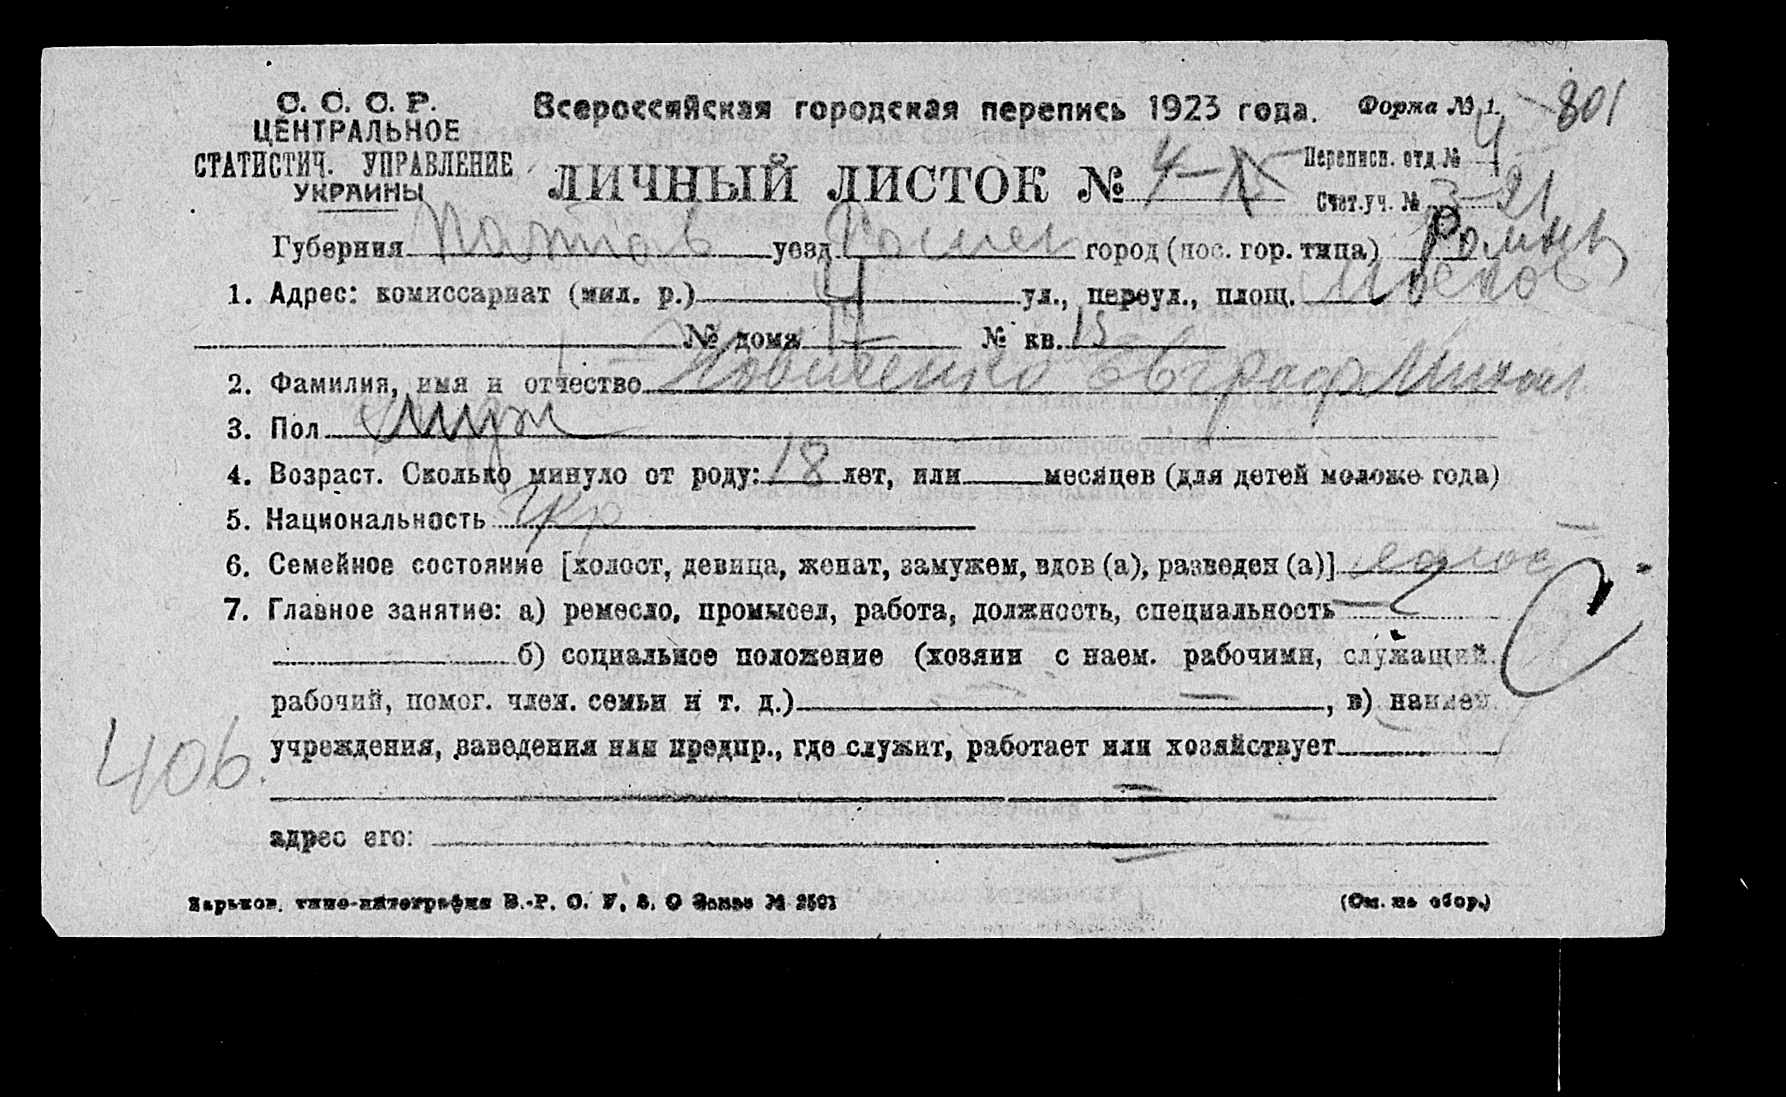 С. С. С. Р.
ЦЕНТРАЛЬНОЕ
СТАТИСТИЧ. УПРАВЛЕНИЕ
УКРАИНЫ
Всероссийская городская перепись 1923 года. Форма № 1. 801
ЛИЧНЫЙ ЛИСТОК № 4-
Переписн. отд № 4
Счет.уч. № 3-21
Губерния Полтав уезд Ромен город (пос. гор. типа) Ромны
1. Адрес: комиссариат (мил. р.) 4 ул., переул., площ. Москов
№ дома 11 № кв. 15
2. Фамилия, имя и отчество Евграф Михаил
3. Пол Муж
4. Возраст. Сколько минуло от роду: 18 лет, или месяцев (для детей моложе года)
5. Национальность Укр
6. Семейное состояние [холост, девица, женат, замужем, вдов (а), разведен (а)] холос
7. Главное занятие: а) ремесло, промысел, работа, должность, специальность —
б) социальное положение (хозяин с наем. рабочими, служащий.
рабочий, помог. член. семьи и т. д.) —, в) наимен
406.
учреждения, заведения или предпр., где служит, работает или хозяйствует
адрес его:
Харьков, типо-литография В.-Р. О. У. З. О Заказ № 2501 (См. на обор.)